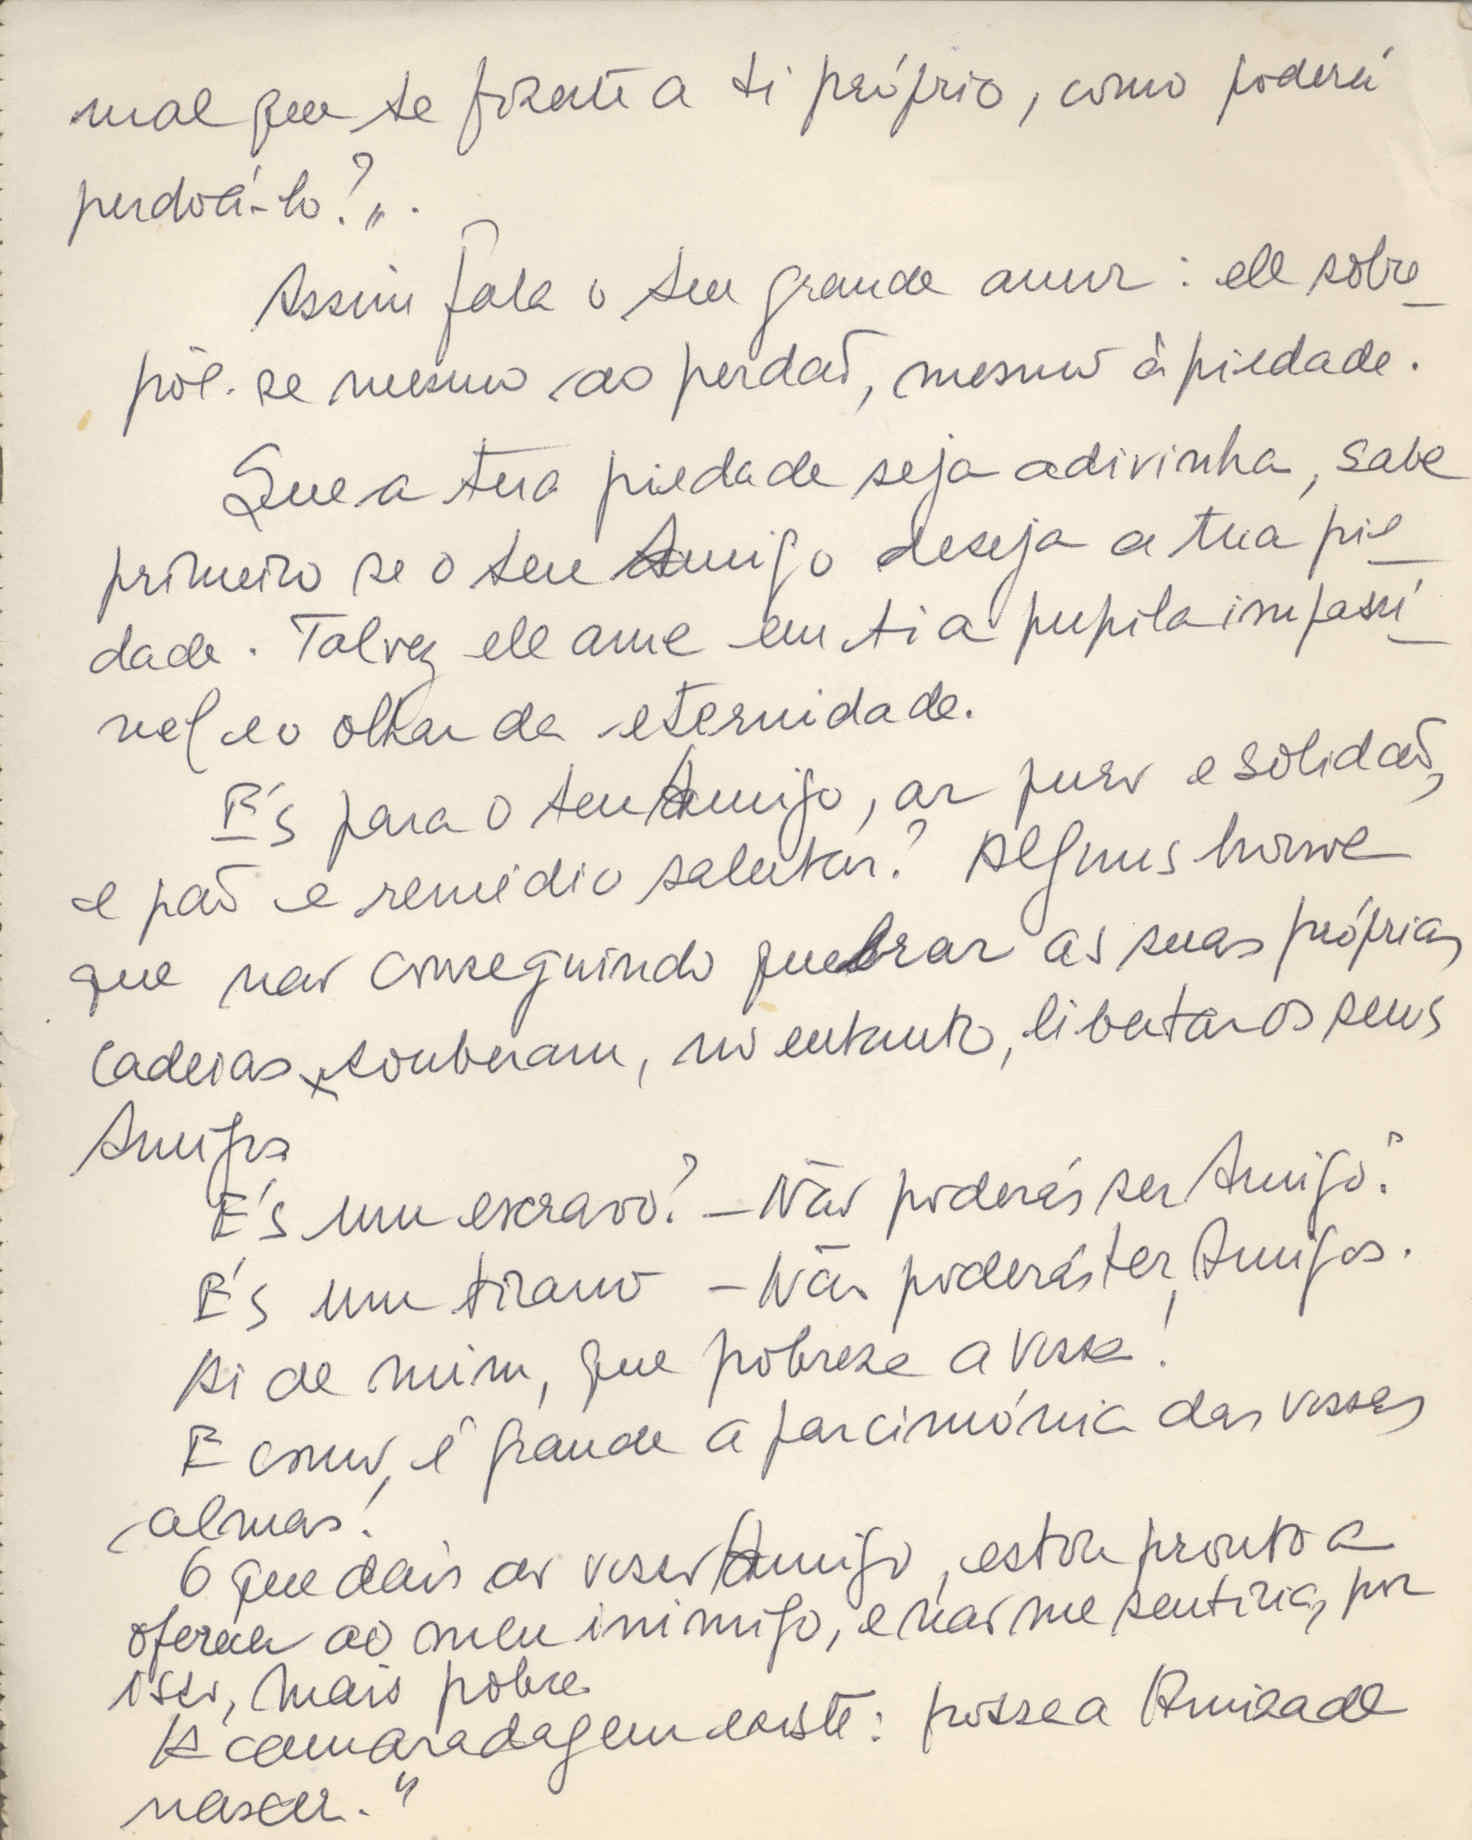 mal que te fizeste a ti próprio, como poderei
perdoá-lo?".
Assim fala o teu grande amor: ele sobre-
põe-se mesmo ao perdão, mesmo à piedade.
Que a tua piedade seja adivinha, sabe
primeiro se o teu Amigo deseja a tua pie-
dade. Talvez ele ame em ti a pupila impassí-
vel e o olhar da eternidade.
És para o teu Amigo, ar puro e solidão,
e pão e remédio salutar? Alguns houve
que não conseguindo quebrar as suas próprias
cadeias, souberam, no entanto, libertar os seus
Amigos
És um escravo? - Não poderás ser Amigo.
És um tirano - Não poderás ter Amigos.
Ai de mim, que pobreza a vossa!
E como, é grande a parcimónia das vossas
almas!
O que dais ao vosso Amigo, estou pronto a
oferecer ao meu inimigo, e não me sentiria, por
isso, mais pobre.
A camaradagem existe: possa a Amizade
nascer."